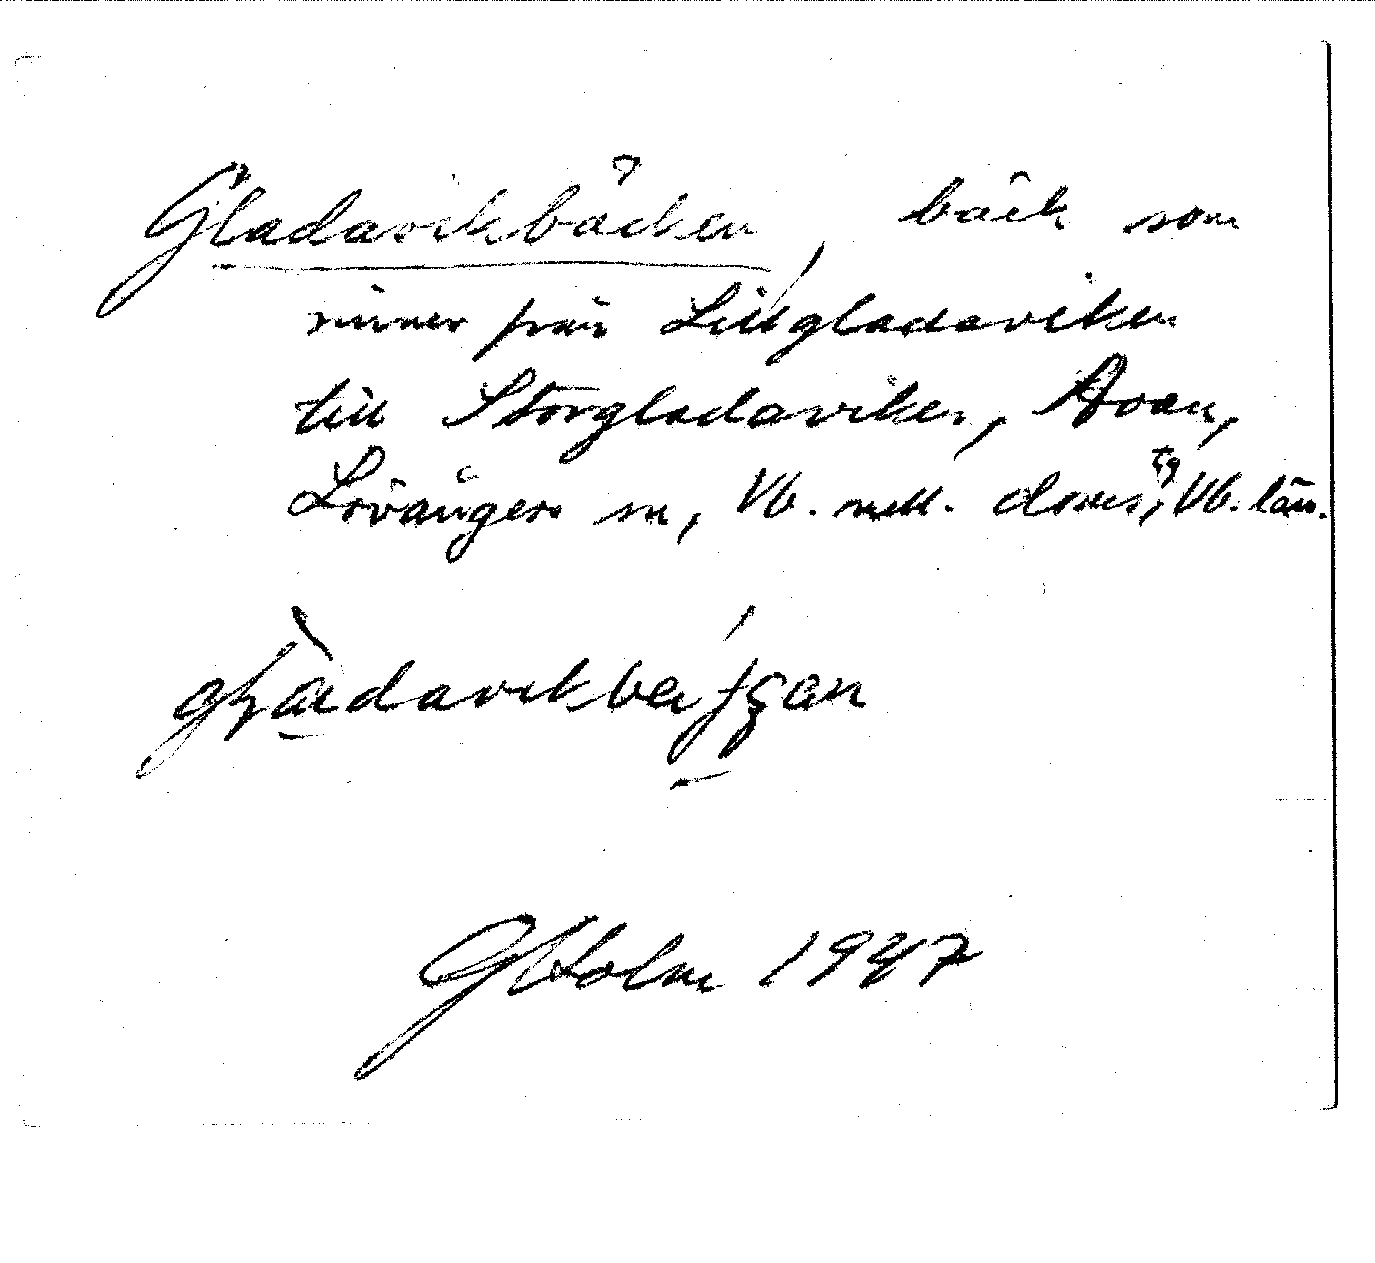 Gladavikbäcken, bäck som
rinner från Lillgladaviken
till Storgladaviken, Avan,
Lövångers sn, Vb. mell. doms, tg Vb. län.
GHolm 1947